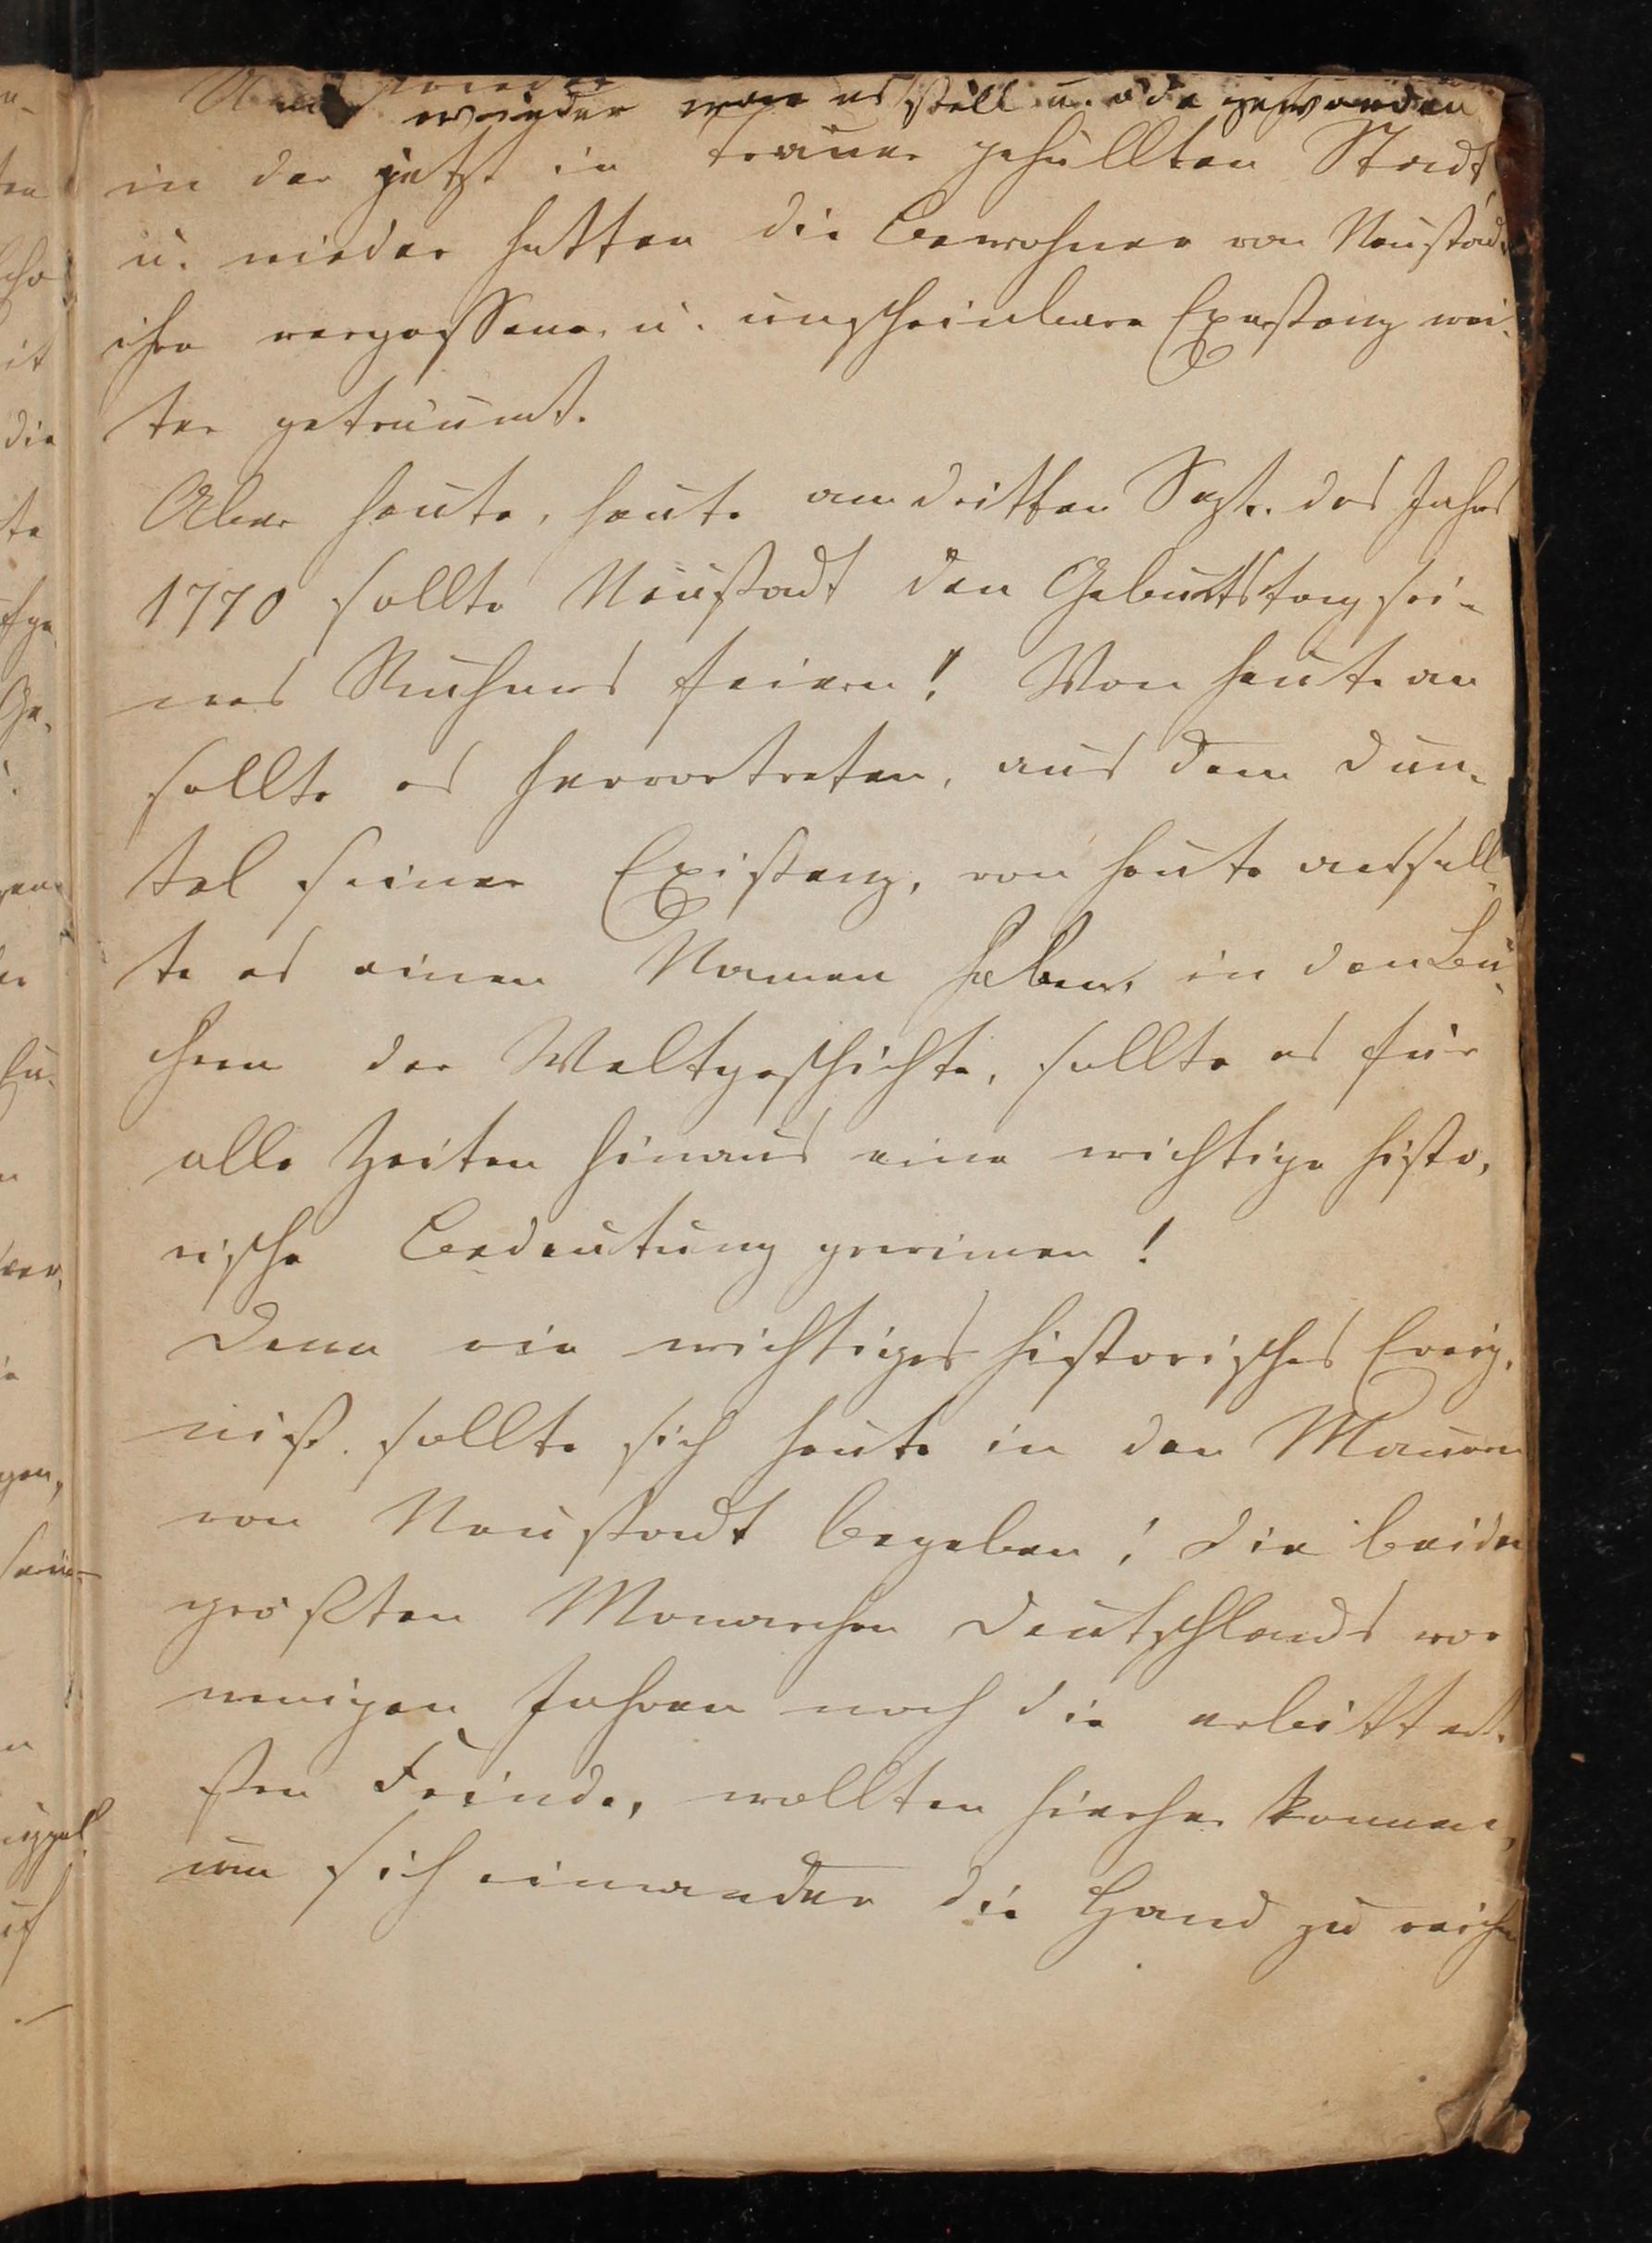 Und wieder war es still u. öde geworden
in der jetzt in Trauer gehüllten Stadt
u. wieder hatten die Bewohner von Neustadt
ihre vergessene u. unscheinbare Existenz wei-
ter geträumt.
Aber heute, heute am dritten Sept. des Jahres
1770 sollte Neustadt den Geburtstag sei-
nes Ruhmes feiern! Von heute an
sollte es hervortreten, aus dem Dun-
kel seiner Existenz, von heute an soll-
te es einen Namen haben, in den Bü-
chern der Weltgeschichte, sollte es für
alle Zeiten hinaus eine wichtige histo-
rische Bedeutung gewinnen!
Denn ein wichtiges historisches Ereig-
niß sollte sich heute in den Mauern
von Neustadt begeben; die beiden
größten Monarchen Deutschlands vor
wenigen Jahren noch die erbittert-
sten Feinde, wollten hierher kommen,
um sich einander die Hand zu reichen